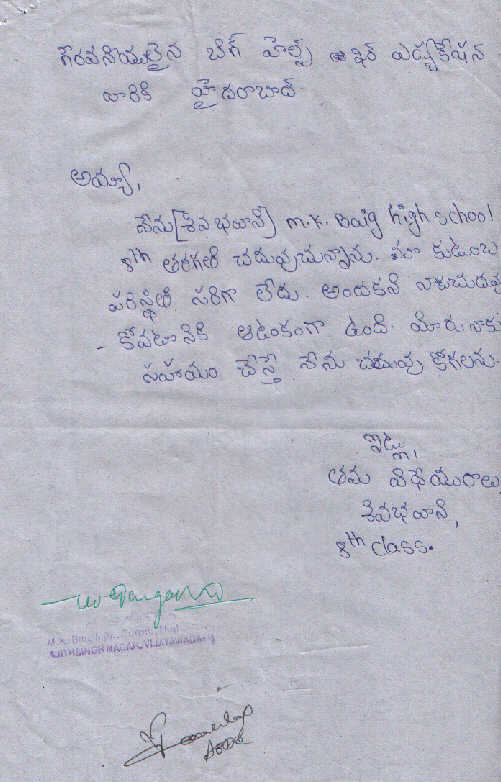 గౌరవనీయులైన బిగ్ హెల్ప్ ఫర్ ఎడ్యుకేషన్
వారికి హైదరాబాద్
అయ్యా,
నేను [శివ భవాని] m.k. Baig high school
8th తరగతి చదువుచున్నాను. మా కుటుంబ
పరిస్థితి సరిగా లేదు. అందుకని నాకు చదువు
- కోవటానికి ఆటంకంగా ఉంది. మీరు నాకు
సహాయం చేస్తే నేను చదువు కోగలను.
ఇట్లు,
తమ విధేయురాలు
శివభవాని,
8th class.